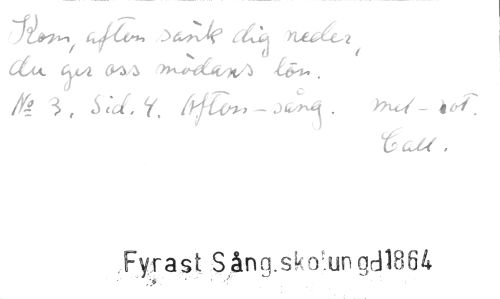 Kom, afton sänk dig neder,
du ger oss mödans lön.
№ 3. Sid. 4. Afton-sång. mel-not.
Call.
Fyrast Sång.skol.ungd1864